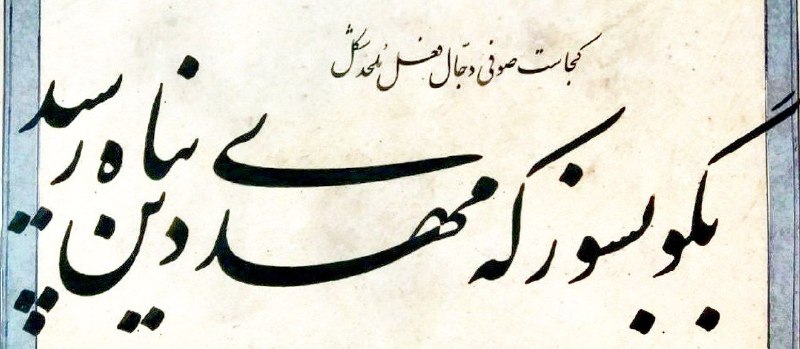 کجاست صوفی دجّال فعل ملحد شکل
بگو بسوز که مهدی دین پناه رسید